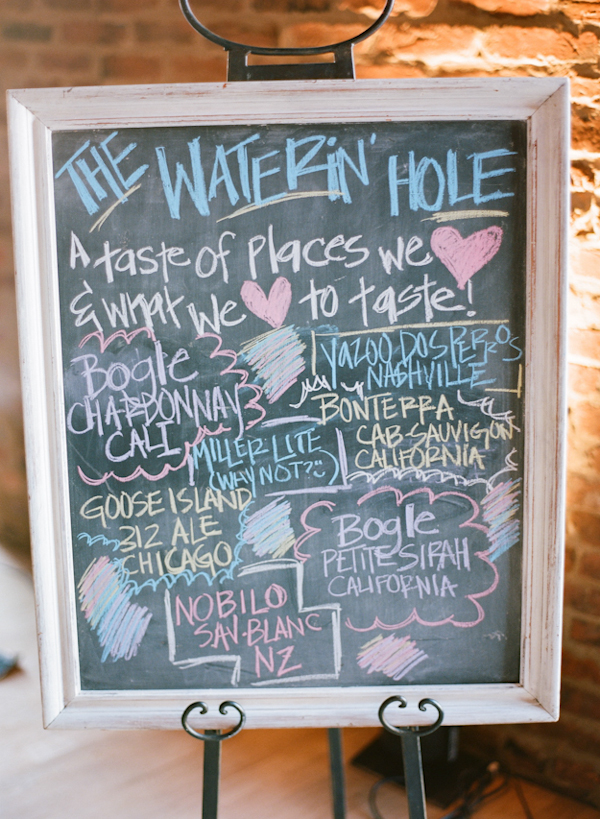 THE WATERIN' HOLE
A taste of places we
& what we to taste!
Bogle
CHARDONNAY
CALI
YAZOO DOS PERROS
NASHVILLE
BONTERRA
CAB SAUVIGON
CALIFORNIA
MILLER LITE
(WHY NOT? :)
GOOSE ISLAND
312 ALE
CHICAGO
Bogle
PETITE SIRAH
CALIFORNIA
NOBILO
SAV-BLANC
NZ